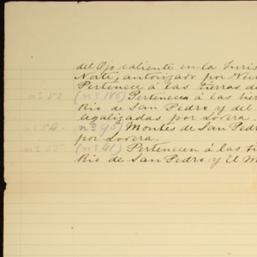 del Ojo caliente en la Juris
Norte; autorizado por
Pertenece á las tierras de
nº 52 (nº 186) Pertenecen á las tier
Rio de San Pedro y del
legalizadas por Lovera.
nº 54. (nº 95) Montes de San Pedro
por Lovera.
(nº 41) Pertenecen á las ti
Rio de San Pedro y El M